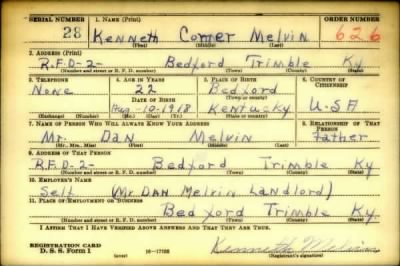 SERIAL NUMBER 1. NAME (Print) ORDER NUMBER
28 Kenneth Comer Melvin 626
(First) (Middle) (Last)
2. ADDRESS (Print)
R.F.D-2- Bedford Trimble Ky
(Number and street or R. F. D. number) (Town) (County) (State)
3. TELEPHONE 4. AGE IN YEARS 5. PLACE OF BIRTH 6. COUNTRY OF CITIZENSHIP
None 22 Bedford
DATE OF BIRTH (Town or county)
Aug-10-1918 Kentucky USA
(Exchange) (Number) (Mo.) (Day) (Yr.) (State or country)
7. NAME OF PERSON WHO WILL ALWAYS KNOW YOUR ADDRESS 8. RELATIONSHIP OF THAT PERSON
Mr. Dan Melvin Father
(Mr., Mrs., Miss) (First) (Middle) (Last)
9. ADDRESS OF THAT PERSON
R.F.D-2- Bedford Trimble Ky
(Number and street or R. F. D. number) (Town) (County) (State)
10. EMPLOYER'S NAME
Self (Mr DAN Melvin Landlord)
11. PLACE OF EMPLOYMENT OR BUSINESS
Bedford Trimble Ky
(Number and street or R. F. D. number) (Town) (County) (State)
I AFFIRM THAT I HAVE VERIFIED ABOVE ANSWERS AND THAT THEY ARE TRUE.
REGISTRATION CARD
D. S. S. Form 1 (over) Kenneth Melvin
(Registrant's signature)